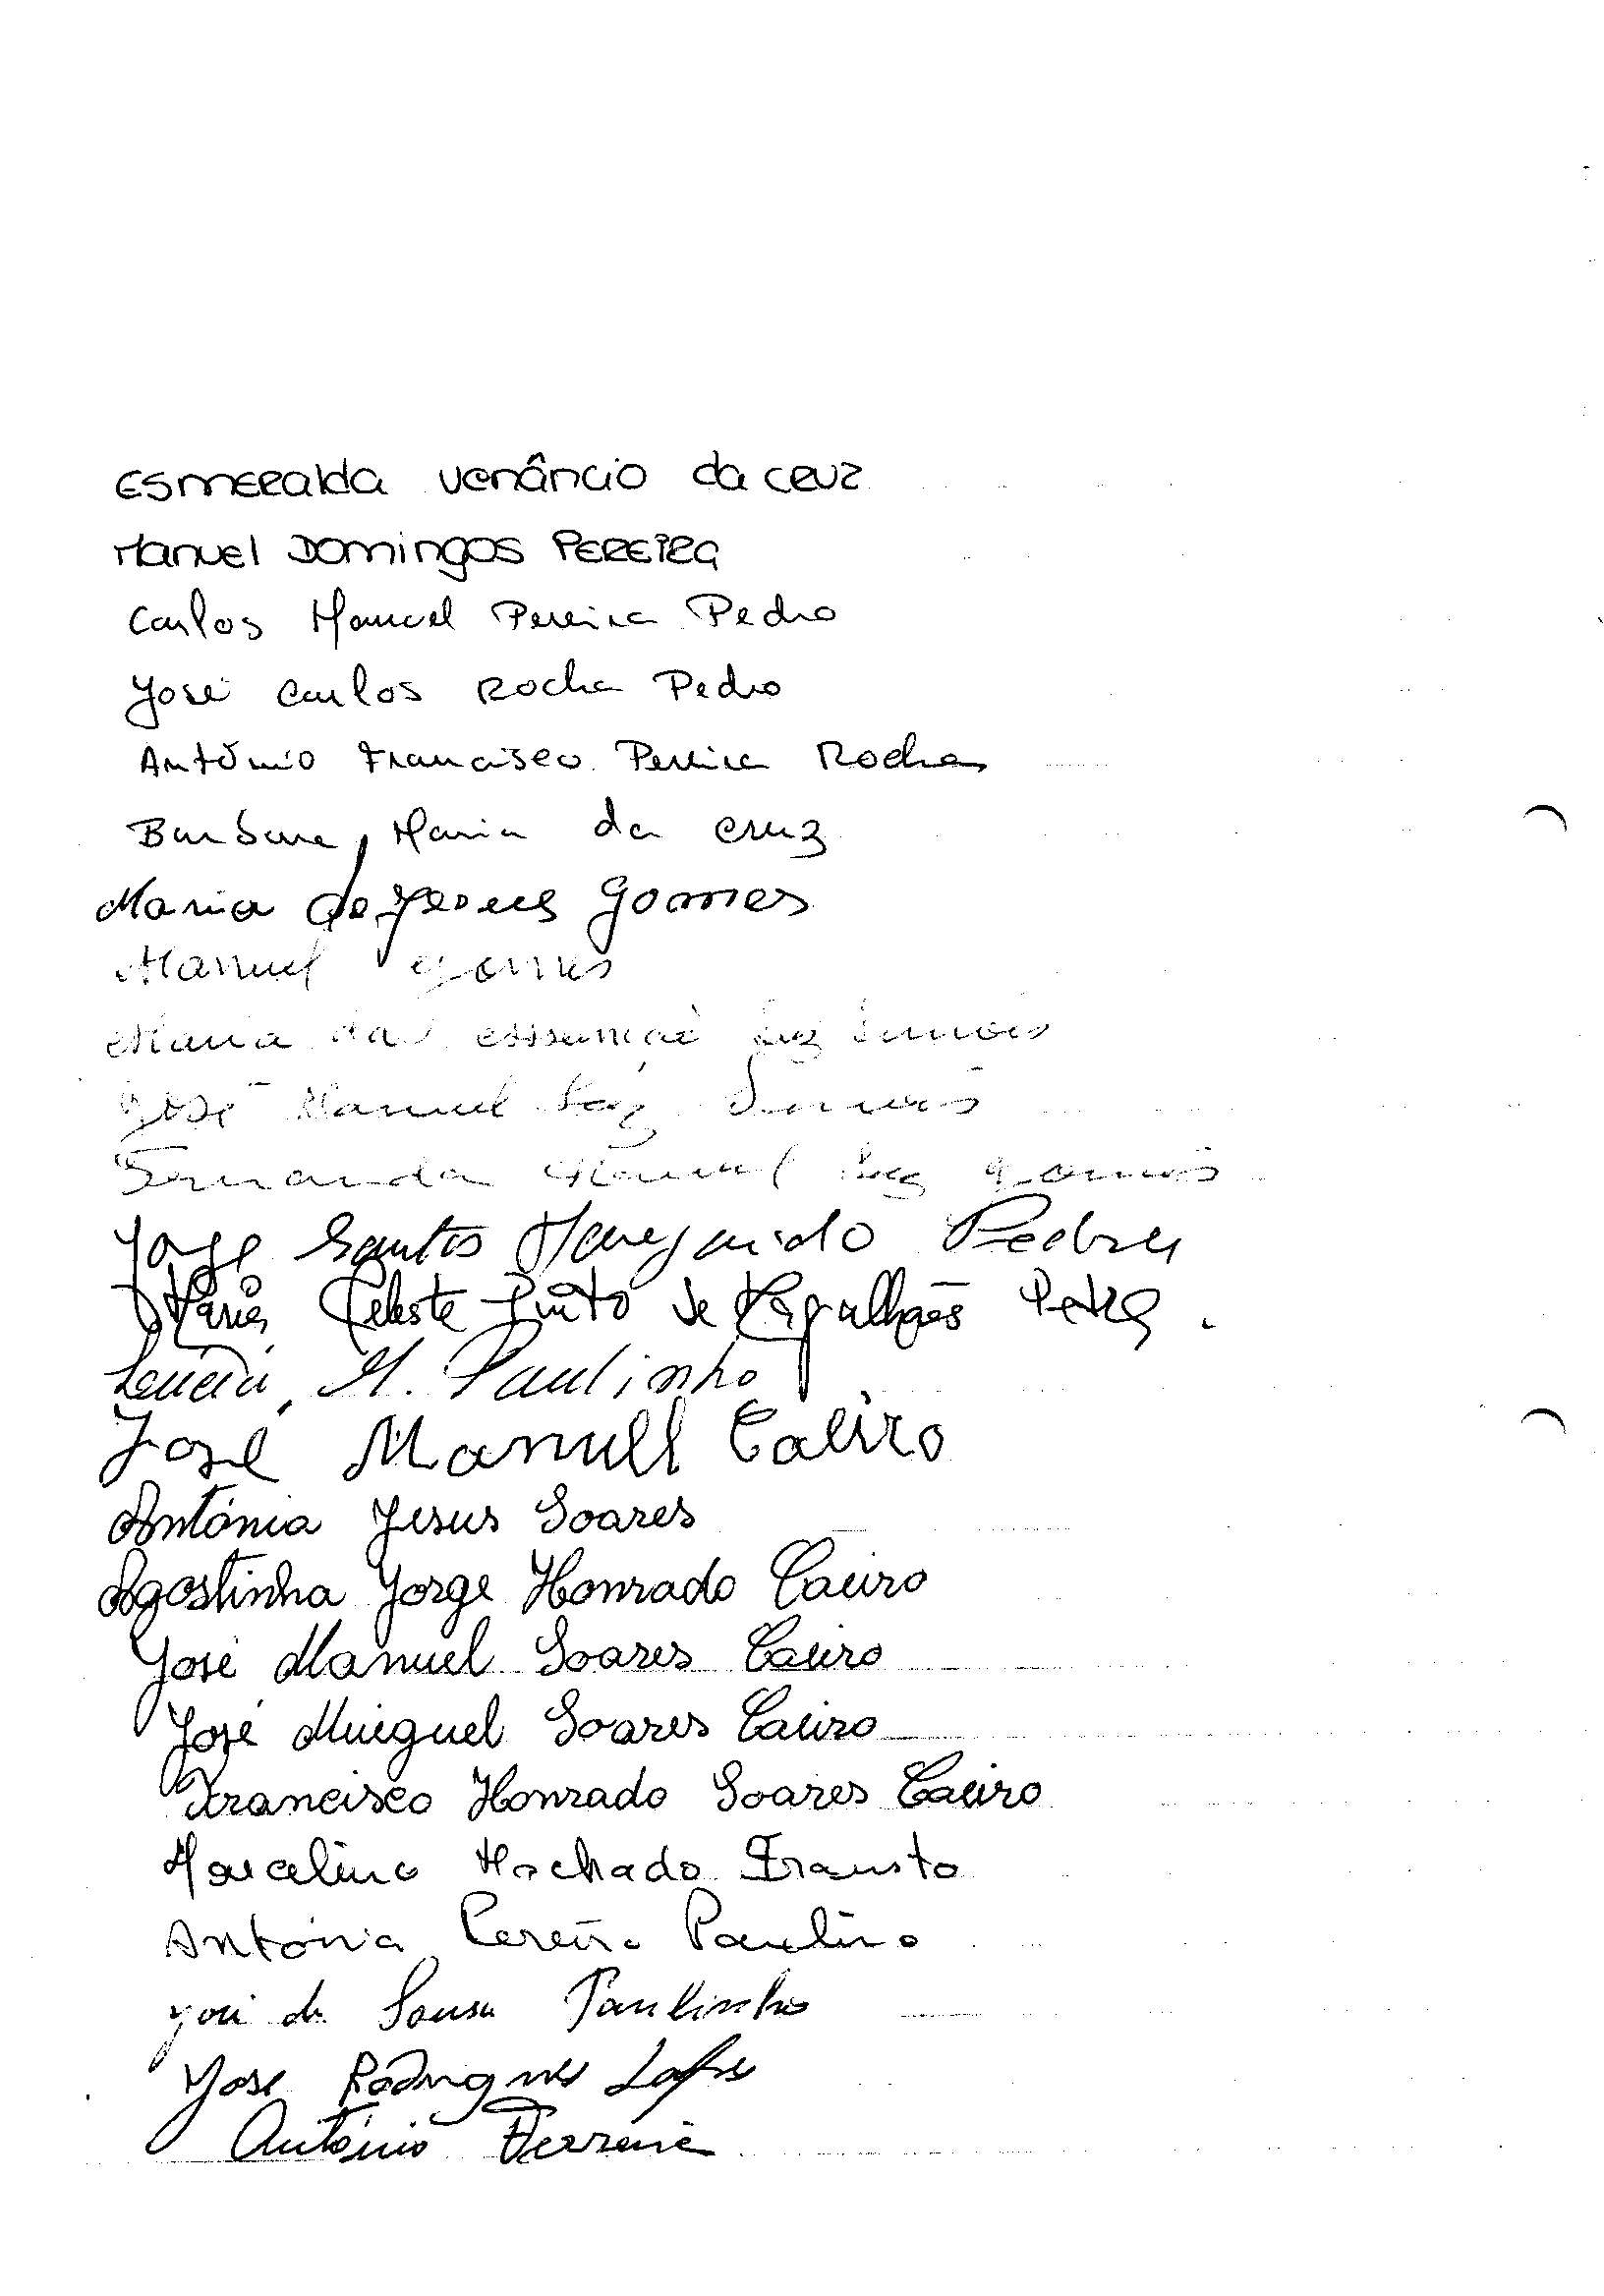 Esmeralda Venâncio da Cruz
Manuel Domingos Pereira
Carlos Manuel Pereira Pedro
José Carlos Rocha Pedro
António Francisco Pereira Rocha
Barbara Maria da Cruz
Maria de Jesus Gomes
Manuel Gomes
Maria da Assunção Luz Simões
José Manuel Luz Simões
Fernanda Manuel Luz Gomes
Jorge Santos Margarido Pedro
Maria Celeste Pinto de Magalhães Pedro.
Lucia M. Paulinho
José Manuel Caeiro
Antónia Jesus Soares
Agostinha Jorge Honrado Caeiro
José Manuel Soares Caeiro
José Mieguel Soares Caeiro
Francisco Honrado Soares Caeiro
Marcelino Machado Frausto
Antónia Pereira Paulino
José de Sousa Paulinho
José Rodrigues
António Ferreira